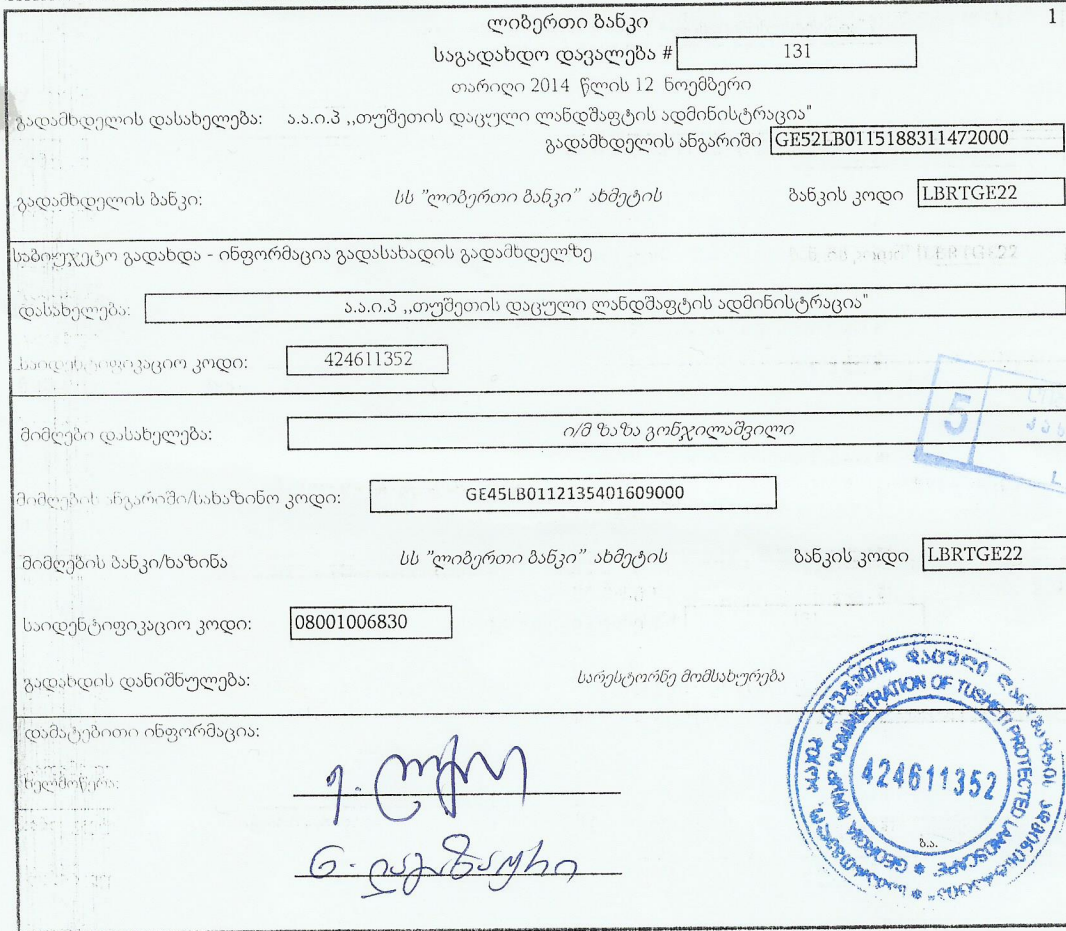 ლიბერთი ბანკი 1
საგადახდო დავალება # 131
თარიღი 2014 წლის 12 ნოემბერი
გადამხდელის დასახელება: ა.ა.ი.პ ,,თუშეთის დაცული ლანდშაფტის ადმინისტრაცია"
გადამხდელის ანგარიში GE52LB0115188311472000
გადამხდელის ბანკი: სს "ლიბერთი ბანკი" ახმეტის ბანკის კოდი LBRTGE22
საბიუჯეტო გადახდა - ინფორმაცია გადასახადის გადამხდელზე
დასახელება: ა.ა.ი.პ ,,თუშეთის დაცული ლანდშაფტის ადმინისტრაცია"
საიდენტიფიკაციო კოდი: 424611352
5
მიმღები დასახელება: ი/მ ზაზა გონჯილაშვილი
მიმღების ანგარიში/სახაზინო კოდი: GE45LB0112135401609000
მიმღების ბანკი/ხაზინა სს "ლიბერთი ბანკი" ახმეტის ბანკის კოდი LBRTGE22
საიდენტიფიკაციო კოდი: 08001006830
გადახდის დანიშნულება: სარესტორნე მომსახურება
დამატებითი ინფორმაცია:
ხელმოწერა:
ADMINISTRATION OF TUSHETI PROTECTED LANDSCAPE" * GEORGIA, NNMP
424611352
ბ.ა.